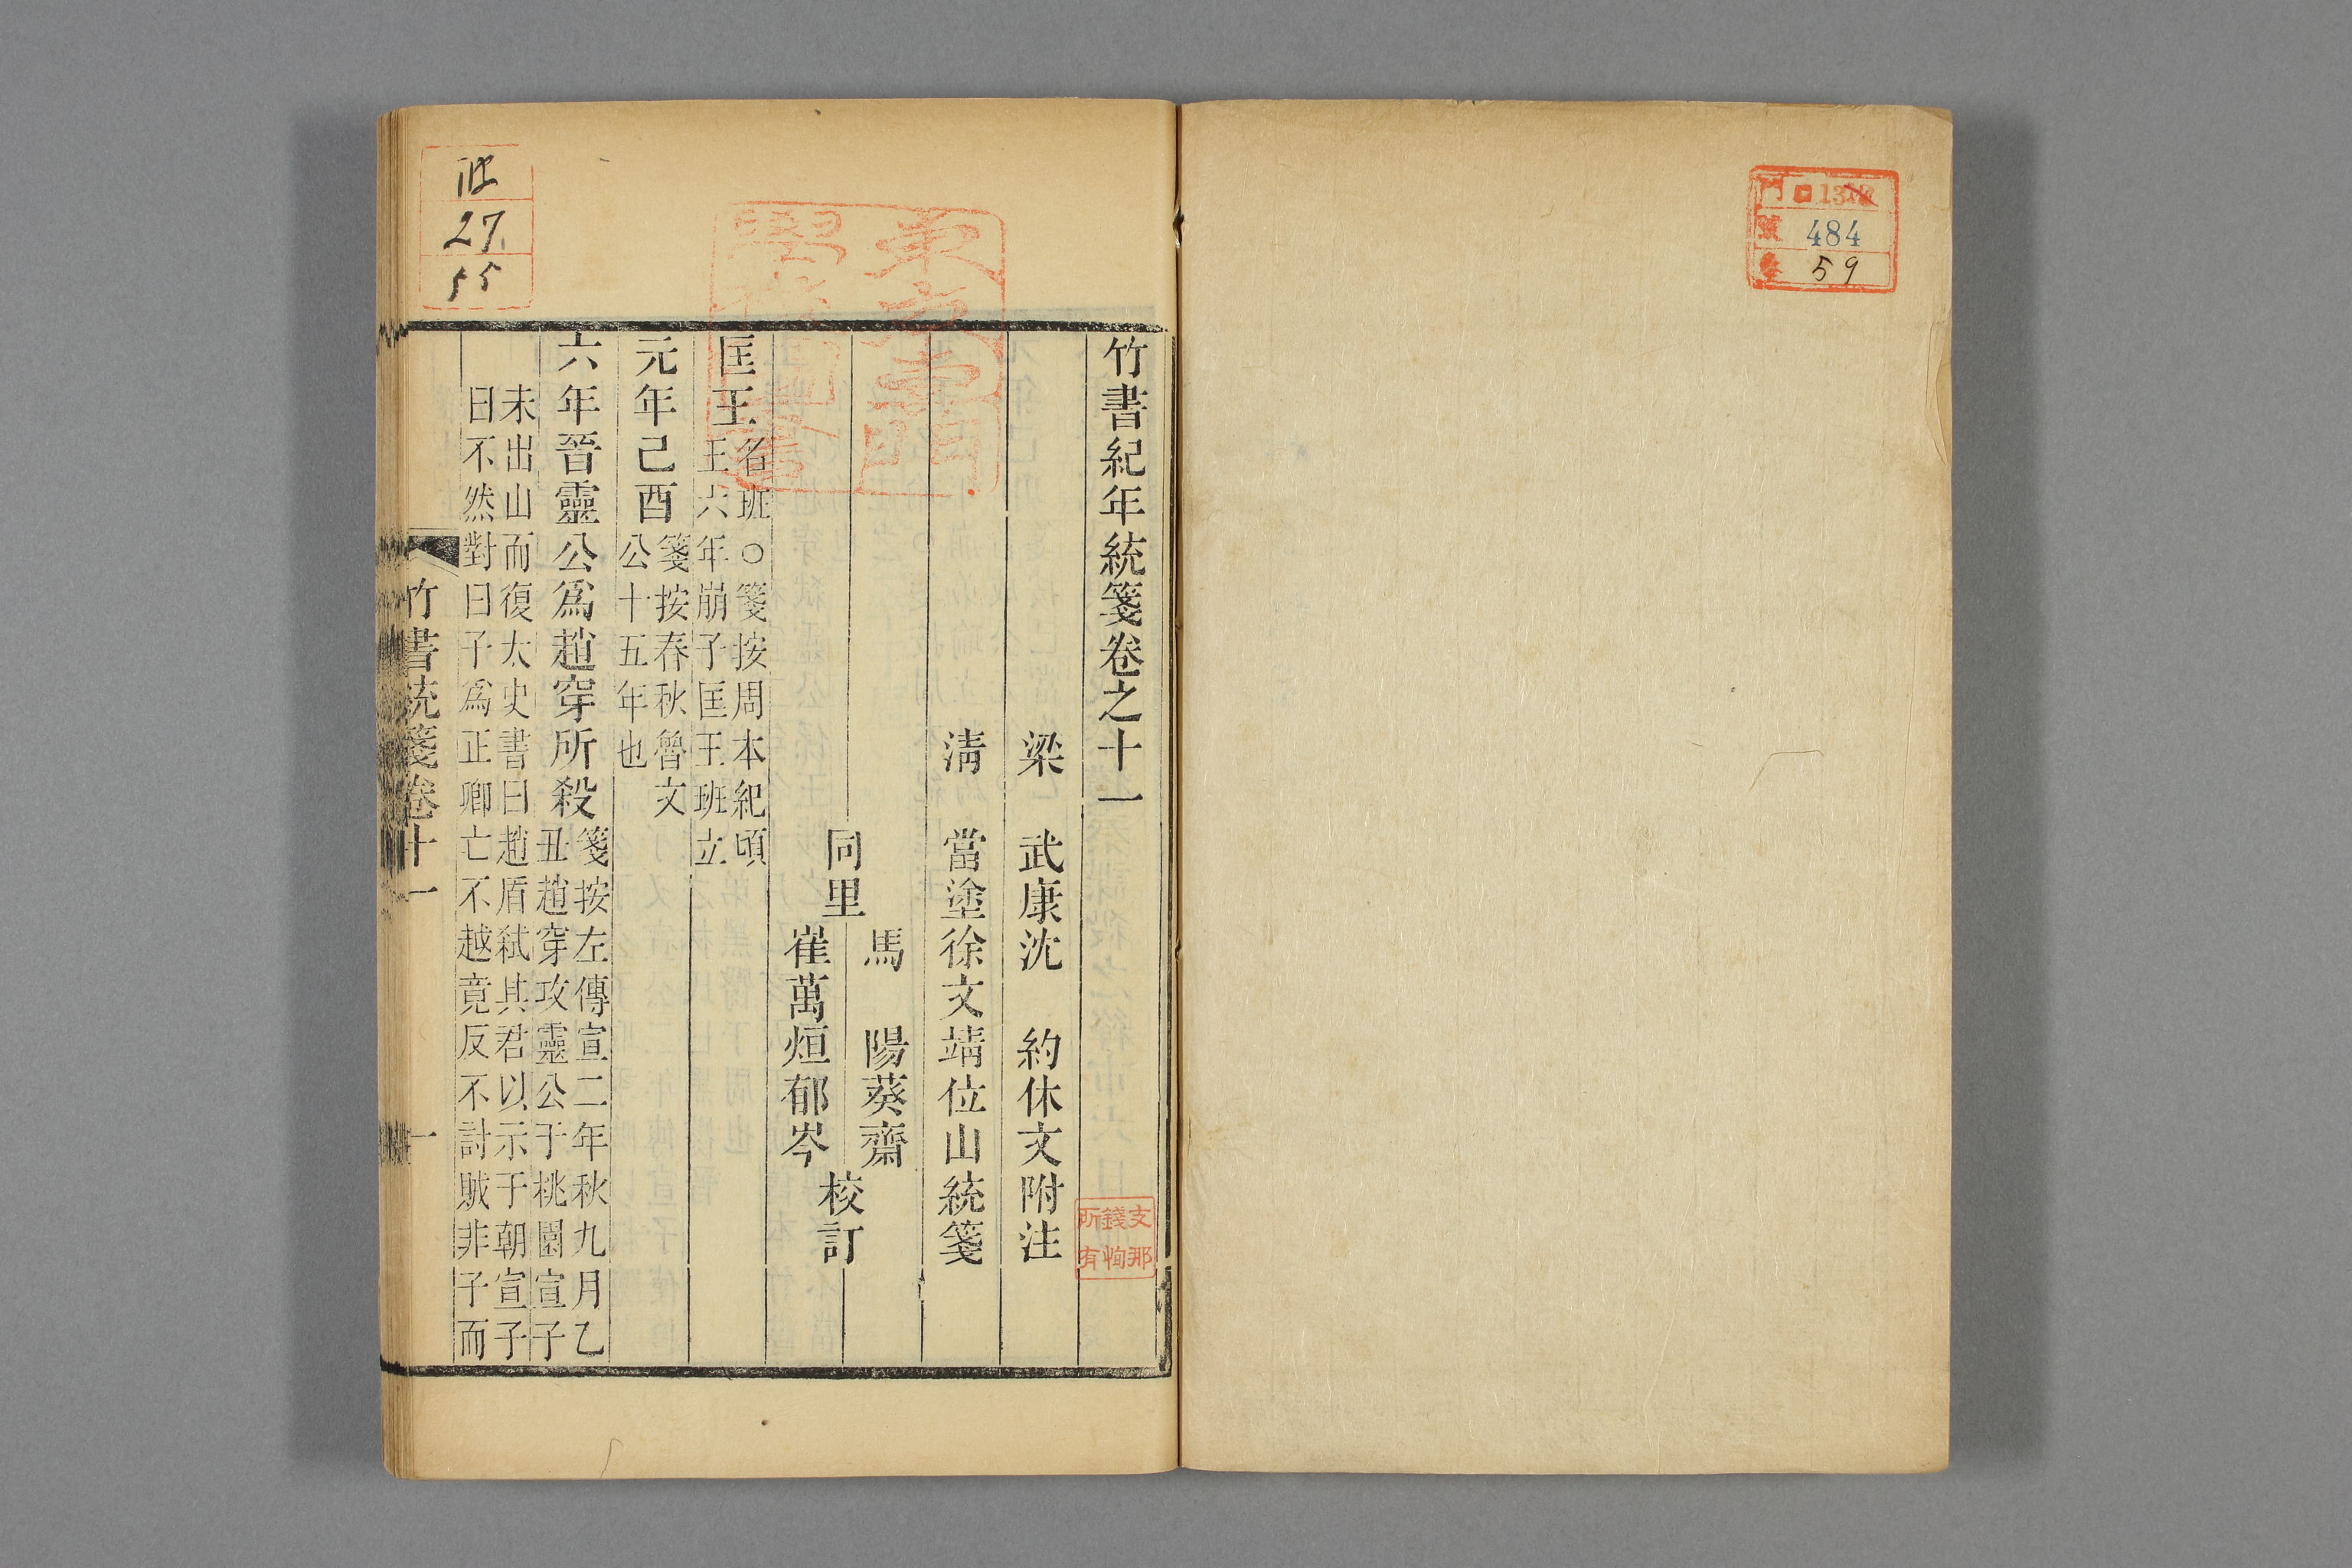 門 号 484 巻 59
竹書紀年統箋卷之十一
梁 武康沈 約休文附注
清 當塗徐文靖位山統箋
馬 陽葵齋
同里 校訂
崔萬烜郁岑
匡王 名班○箋按周本紀頃
王六年崩子匡王班立
元年己酉 箋按春秋魯文
公十五年也
六年晉靈公爲趙穿所殺 箋按左傳宣二年秋九月乙
丑趙穿攻靈公于桃園宣子
未出山而復太史書曰趙盾弑其君以示于朝宣子
曰不然對曰子爲正卿亡不越竟反不討賊非子而
竹書統箋卷十一 一
27.
55
支那
錢恂
所有